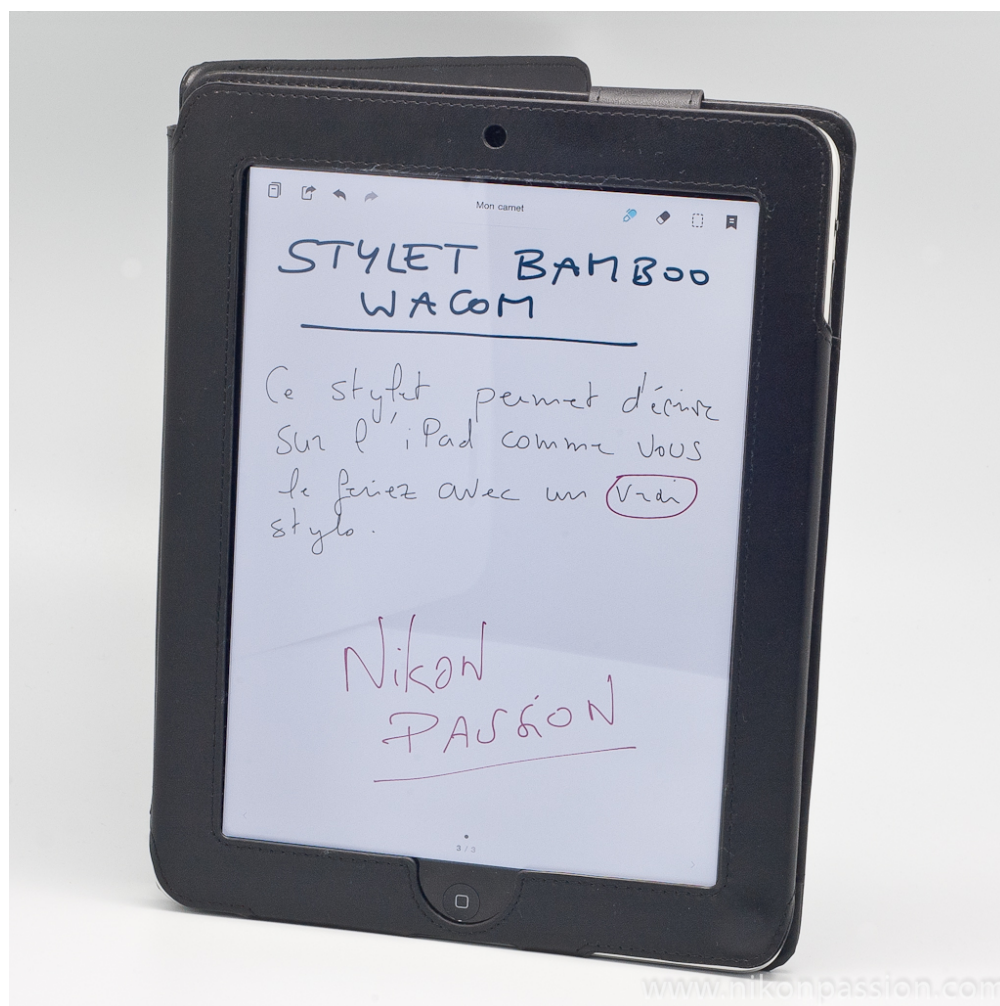 Mon carnet
STYLET BAMBOO
WACOM
Ce stylet permet d'écrire
sur l'iPad comme vous
le feriez avec un vrai
stylo.
Nikon
PASSION
3 / 3
www.nikonpassion.com